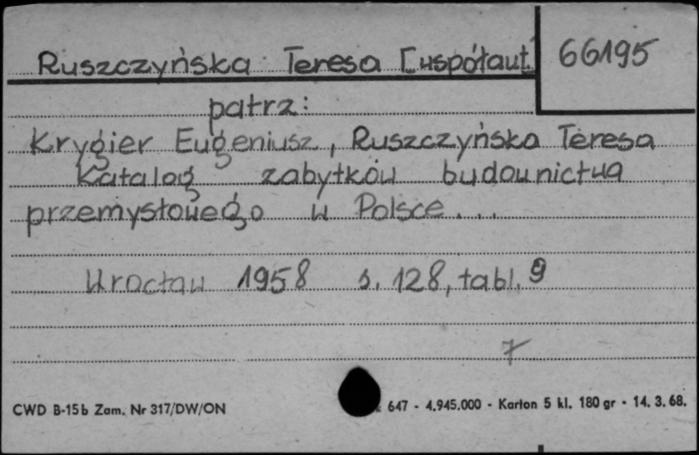 Ruszczyńska Teresa [współaut.] 66195
patrz:
Krygier Eugeniusz, Ruszczyńska Teresa
Katalog zabytków budownictwa
przemysłowego w Polsce...
Wrocław 1958 s. 128, tabl. 9
7
CWD B-15b Zam. Nr 317/DW/ON 647 - 4.945.000 - Karton 5 kl. 180 gr - 14. 3. 68.